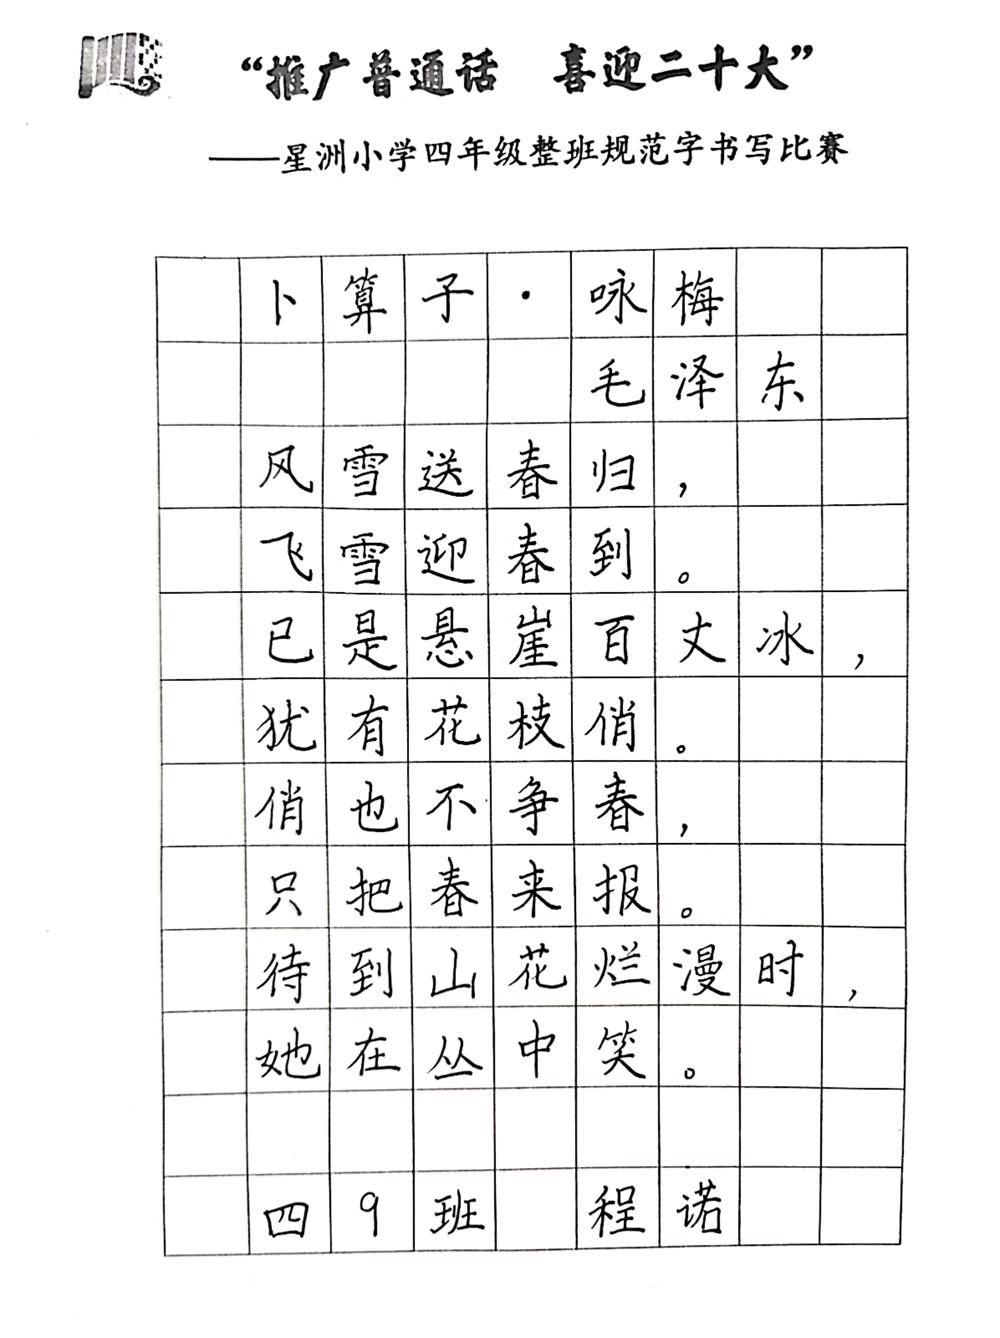 “推广普通话　喜迎二十大”
——星洲小学四年级整班规范字书写比赛
卜算子·咏梅
毛泽东
风雪送春归，
飞雪迎春到。
已是悬崖百丈冰，
犹有花枝俏。
俏也不争春，
只把春来报。
待到山花烂漫时，
她在丛中笑。
四9班　程诺